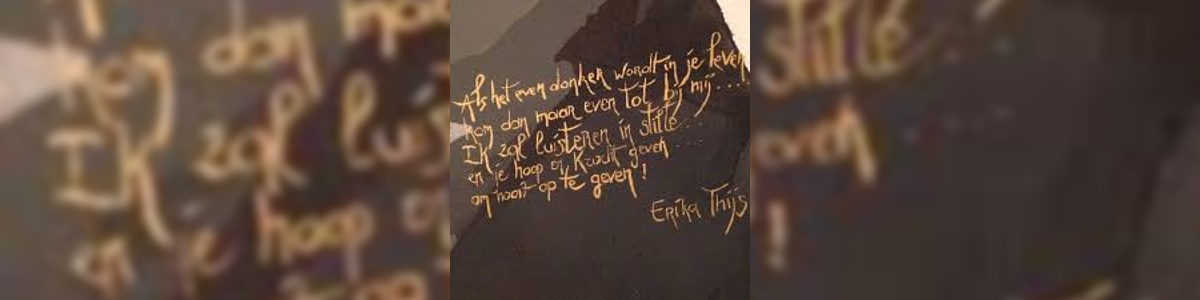 Als het even donker wordt in je leven
kom dan maar even tot bij mij....
Ik zal luisteren in stilte...
en je hoop of kracht geven ....
om nooit op te geven!
Erika Thijs